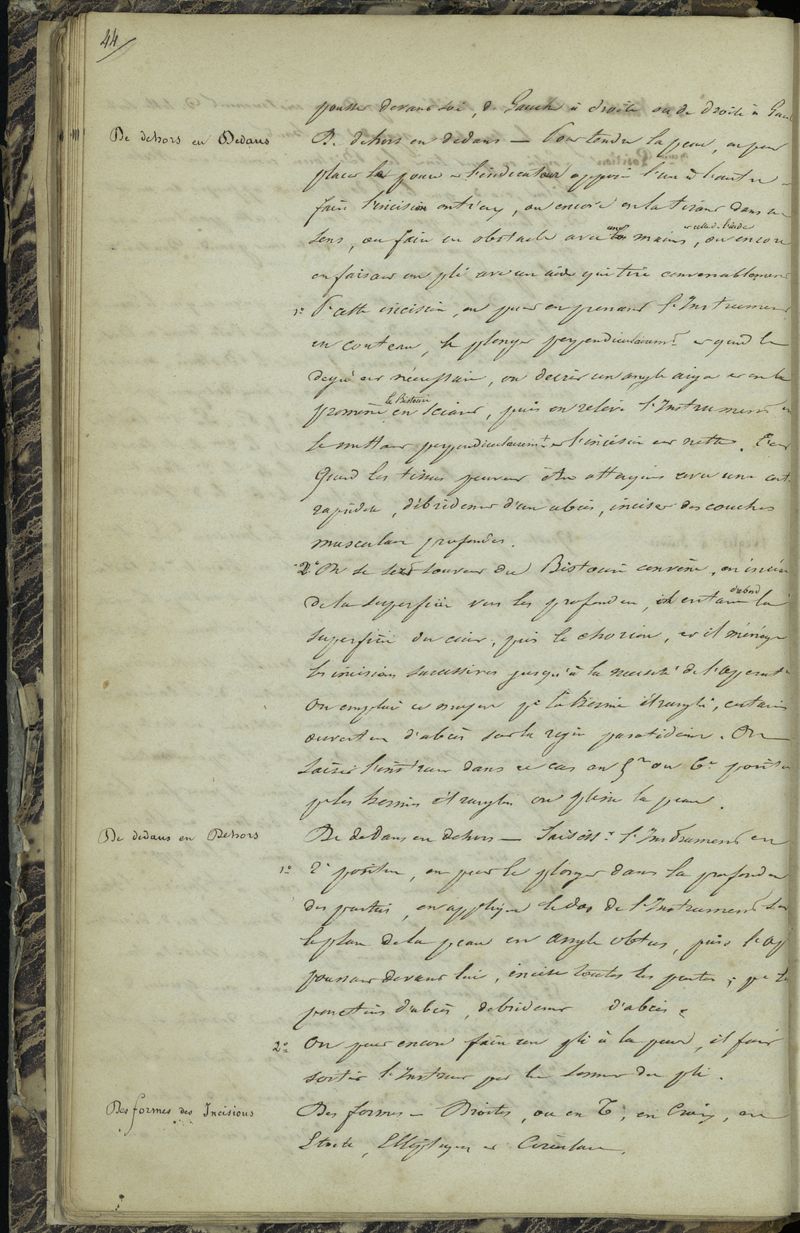 44
pousse devant soi, de Gauche à droite ou de droite à Gau
De dehors en Dedans
De dehors en dedans — Pour tendre la peau, on peut
placer le pouce et l'indicateur opposé l'un à l'autre et
faire l'incision entr'eux, ou encore en la tirant dans un
sens, on fait un obstacle avec une main, et celle de l'aide ou encore
en faisant un pli avec un aide qui tire convenablement
1° Pr cette incision, on peut en prenant l'Instrument
en couteau, le plonger perpendiculairemt et quand le
degré est nécessaire, on décrit un angle aigu et on le
promène le Bistouri en sciant, puis on relève l'Instrument en
le mettant perpendiculairement et l'incision est nette.
Quand les tissus peuvent être attaqués avec une cert
rapidité, débridement d'un abcès, inciser des couches
musculaire profondes.
2° On se sert souvent du Bistouri convexe, on incise
de la superficie vers les profondeur, il entame d'abord la
superficie du cuir, puis le chorion, et il ménage
les incisions successives jusqu'à la nécessité de l'opérat
On emploie ce moyen pr la hernie étranglé, certaines
ouverture d'abcès sur la région parotidienne. On
saisit l'instrum dans ce cas en 5me ou 6e position
pr les hernies étranglés on plisse la peau.
De dedans en Dehors
De dedans en dehors — Saisisst l'Instrument en
1° 2e position, on peut le plonger dans la profondeur
des parties, on applique le dos de l'Instrument sur
le plan de la peau en angle obtus, puis
poussant devant lui, incise toutes les parties; pr les
ponctions d'abcès, débridement d'abcès
2° On peut encore faire un pli à la peau, il fait
sortir l'Instrum par le sommet du pli.
Des formes des Incisions
Des formes — Droites, ou en T, en Croix, en
Etoile, Elliptique et Circulaire.